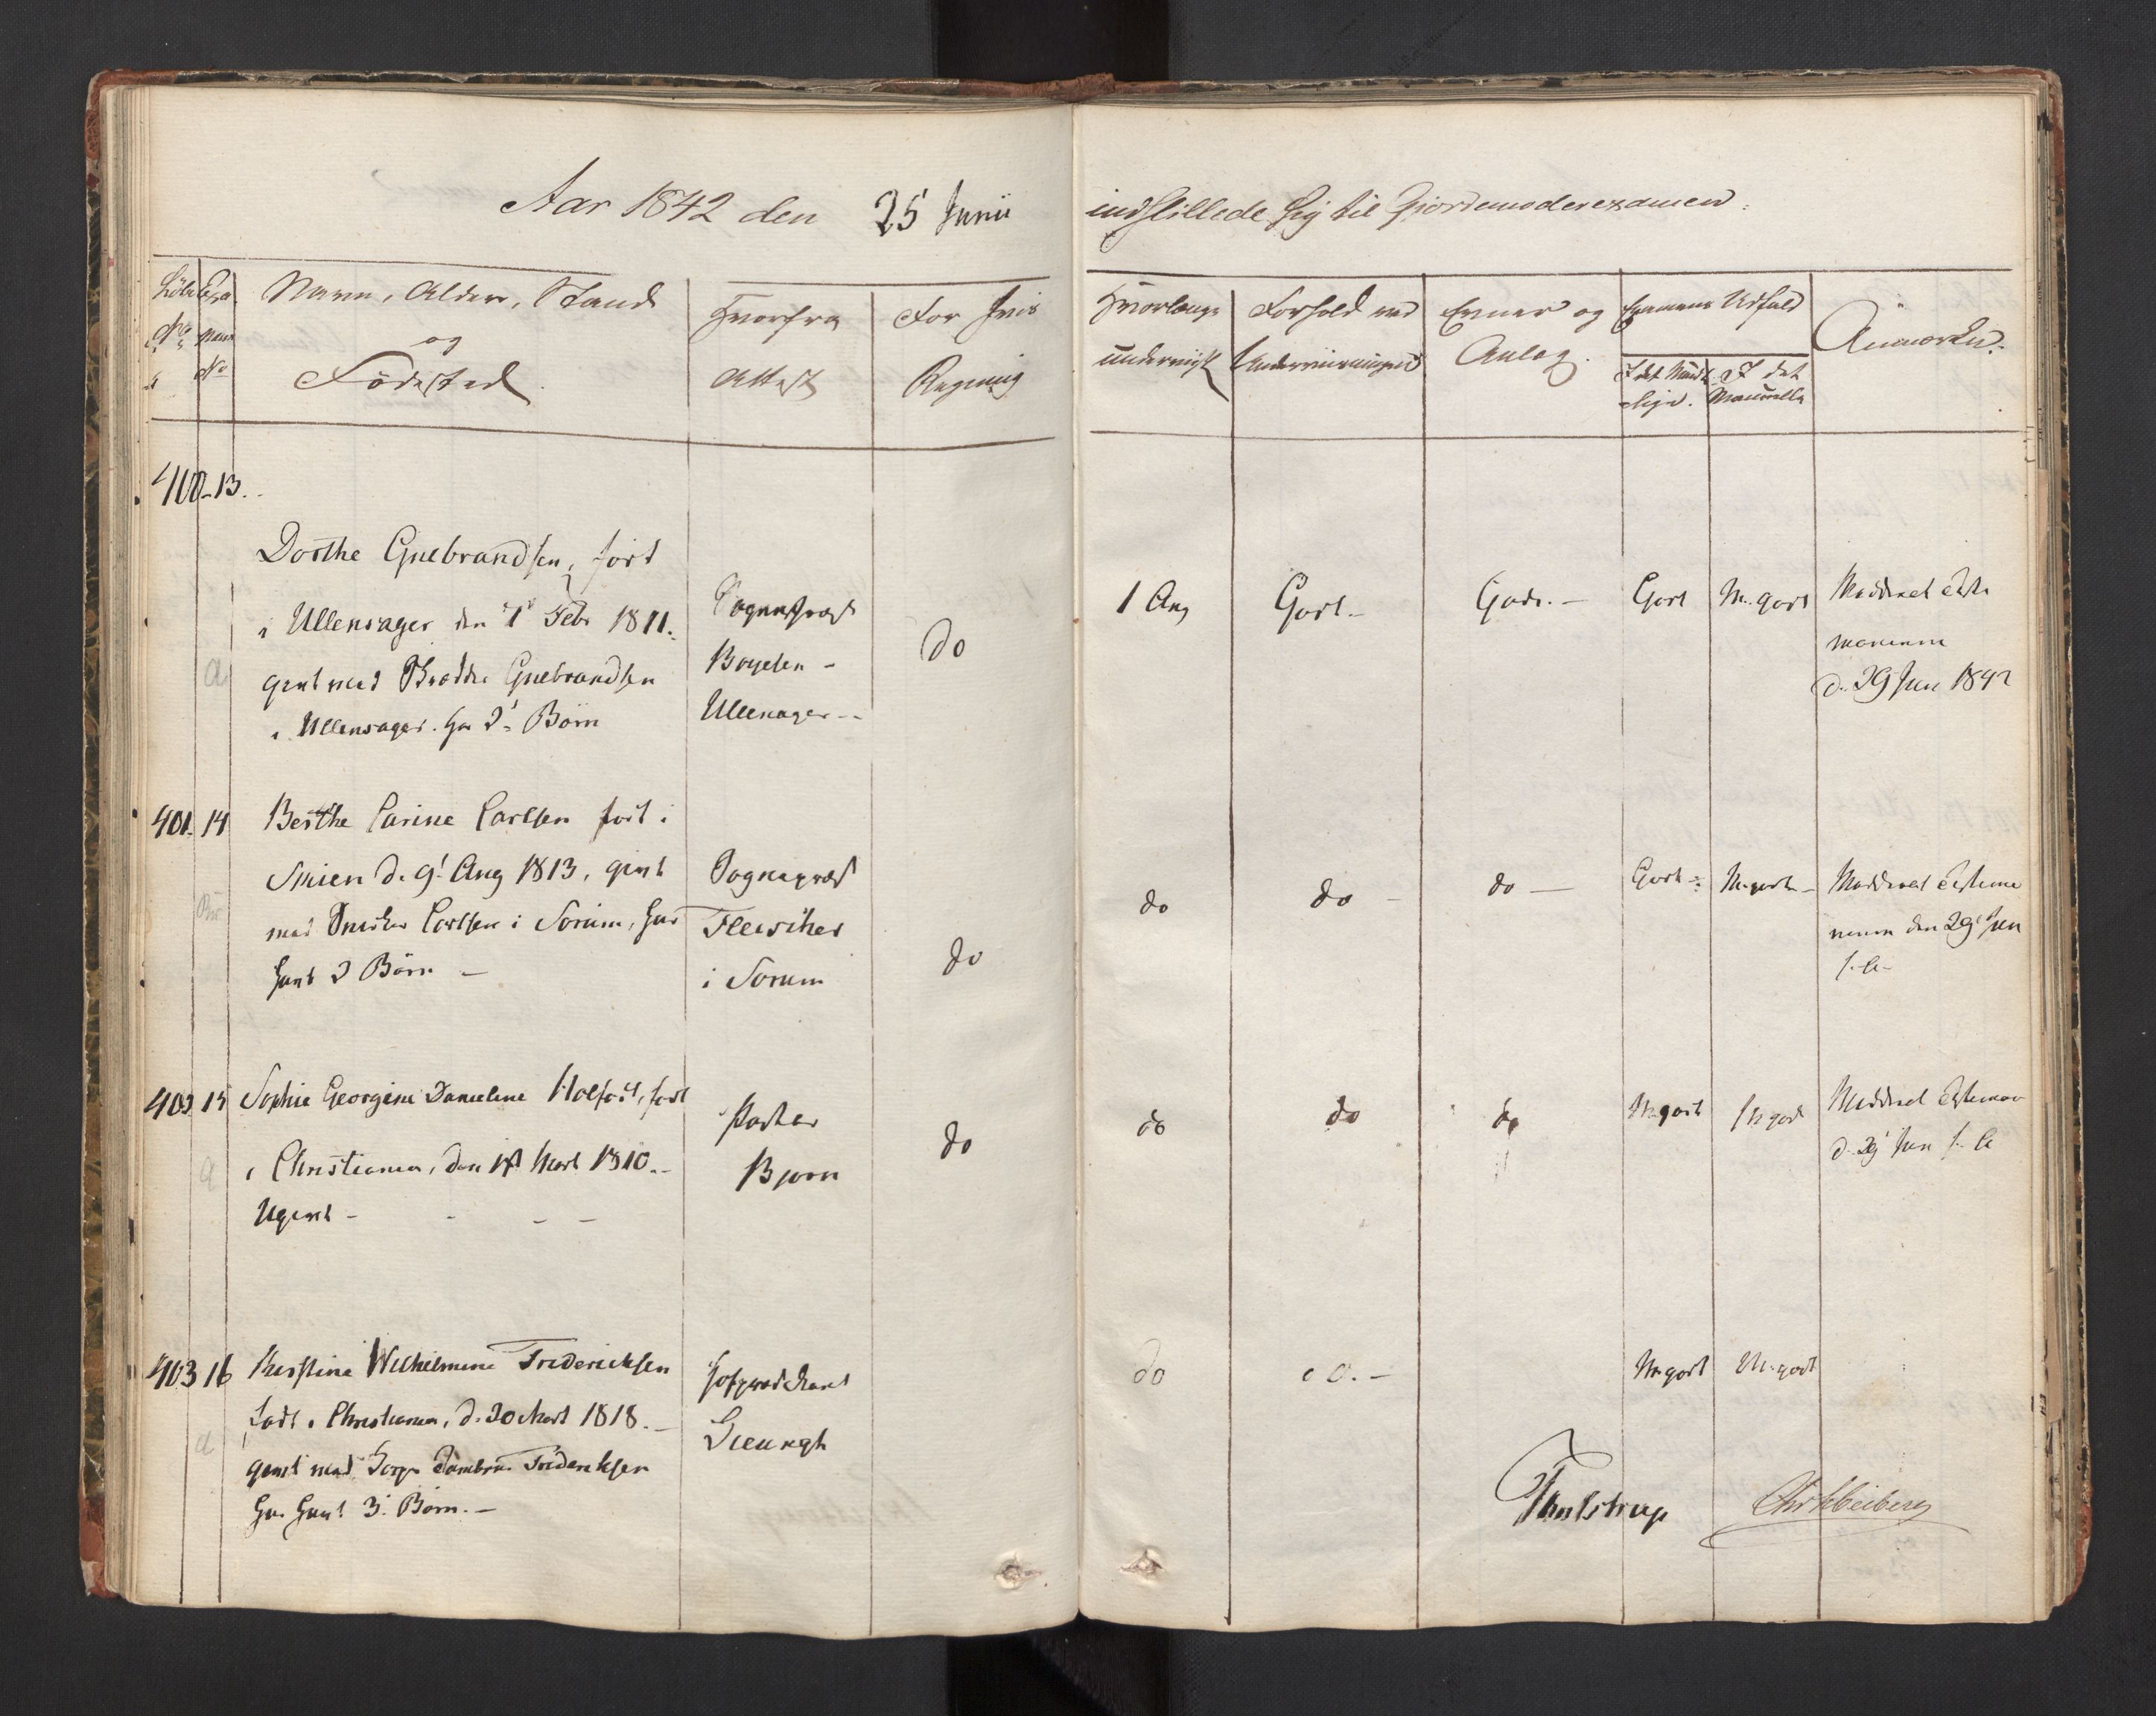 Aar 1842 den 25 Junii indstillede sig til Gjordemoderexamen.
Löbe
No
Exa
mens
No
Navn, Alder, Stand
og
Födested.
Hvorfra
Attest
For hvis
Regning
Hvorlænge
underviist
Forhold ved
Underviisningen
Evner og
Anlæg.
Examens Udfald
I det Mündt
lige.
I det
Manuelle
Anmærkn.
400 13.
Dorthe Gulbrandsen, født
i Ullensager den 1 Febr 1811.
givt med Gulbrandsen
i Ullensager. har 2 Börn
a
Sognepræst
Boyesen -
Ullensager --
do
1 Aar
Godt -
Gode. -
Godt
M. godt
Meddeelt Testi
monium
d. 29 Jun 1842
401. 14
Berthe Carine Carlsen født i
d. 9 Aug 1813, givt
med Carlsen i Sorum, har
havt 2 Börn -
Sognepræst
Fleischer
i Sorum
do
do
do -
do -
Godt
M. godt -
Meddeelt Testimo
nium den 29 Jun
s. A -
402 15
Sophie Georgine Danieline Holfort, født
i Christiania, den Mart 1810. -
Ugivt -
a
Pastor
Bjorn
do
do
do
do
M godt
M godt
Meddeelt Testimon
d. 29 Jun s. A
403 16
Wilhelmine Fredericksen
født i Christiania, d. 20 Mart 1818. -
givt med Fredericksen
Har havt 3 Börn. -
a
do
do. -
M. godt
M. godt
Thulstrup
Chr Heiberg